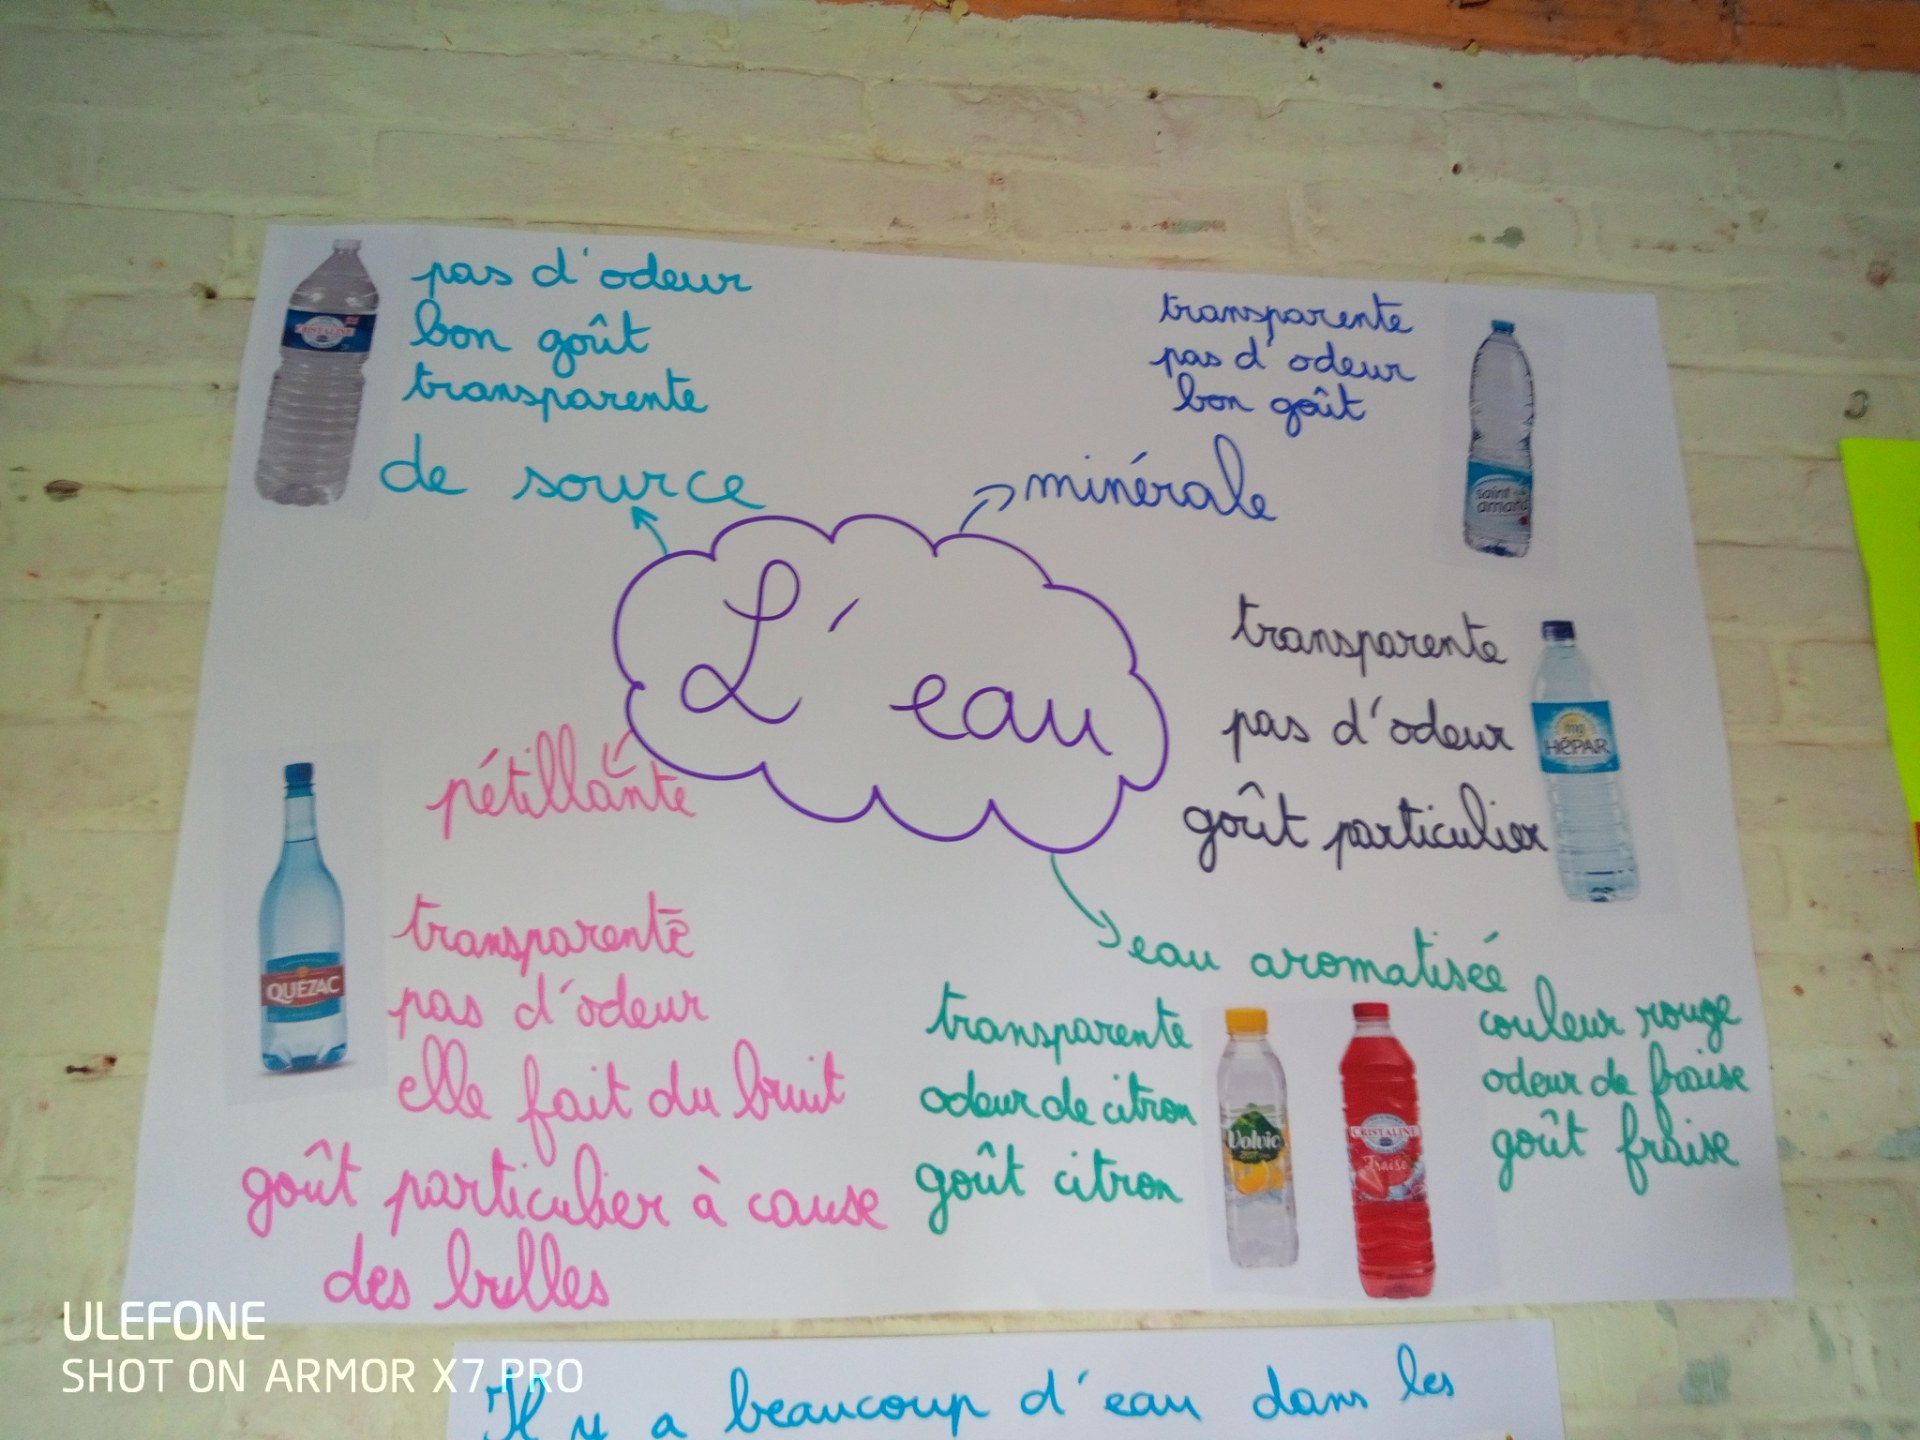 pas d'odeur
bon goût
transparente
de source
CRISTALINE
transparente
pas d'odeur
bon goût
minérale
saint
amand
L'eau
transparente
pas d'odeur
goût particulier
HÉPAR
pétillante
QUÉZAC
transparente
pas d'odeur
elle fait du bruit
goût particulier à cause
des bulles
eau aromatisée
transparente
odeur de citron
goût citron
Volvic
CRISTALINE
fraise
couleur rouge
odeur de fraise
goût fraise
Il y a beaucoup d'eau dans les
ULEFONE
SHOT ON ARMOR X7 PRO